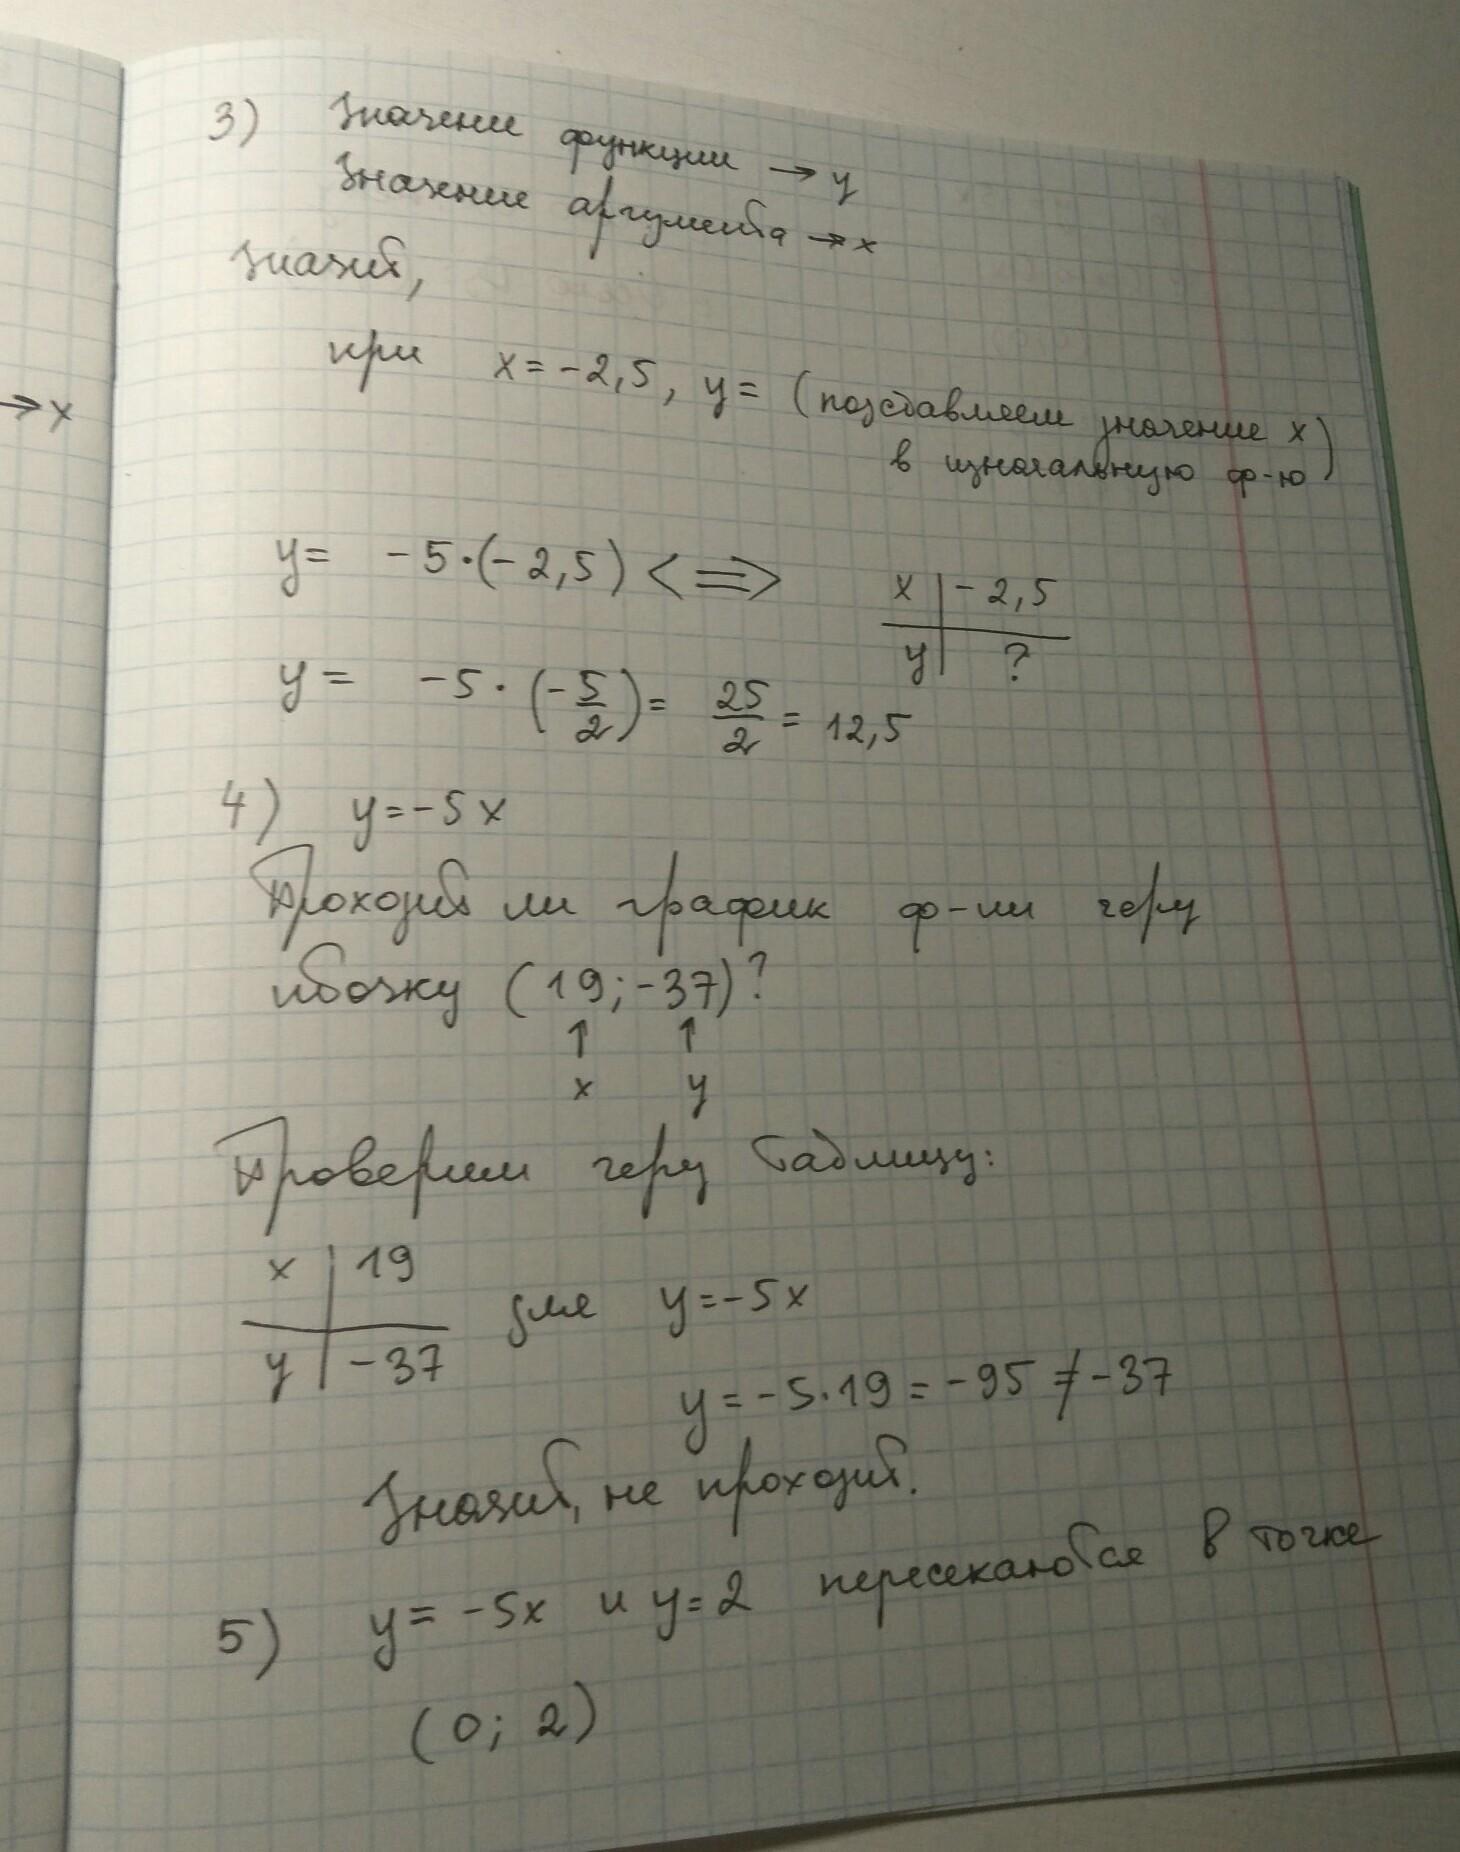 3) Значение функции → y
Значение аргумента → x
→ x
Значит,
при x = -2,5, y = (подставляем значение x
в изначальную ф-ю)
y = -5·(-2,5) <=>
x | -2,5
y | ?
y = -5·(-5/2) = 25/2 = 12,5
4) y = -5x
Проходит ли график ф-ии через
точку (19; -37)?
↑ ↑
x y
Проверим через таблицу:
x | 19
y | -37
для y = -5x
y = -5·19 = -95 ≠ -37
Значит, не проходит.
5) y = -5x и y = 2 пересекаются в точке
(0; 2)